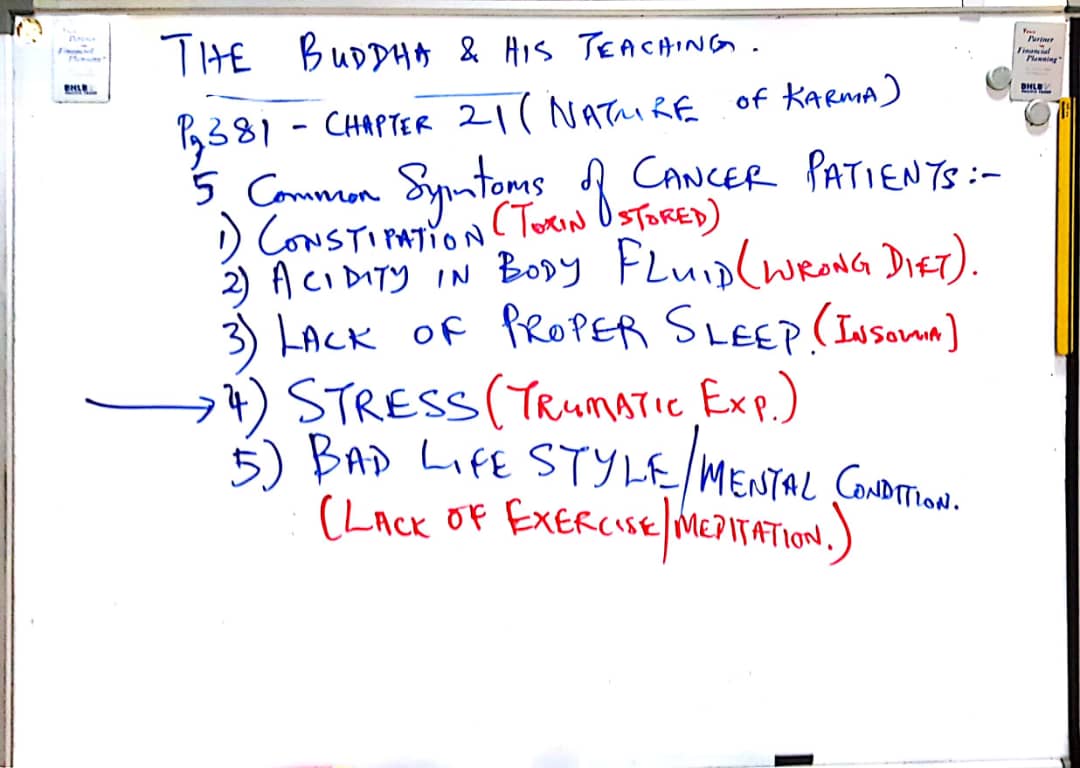 THE BUDDHA & HIS TEACHING.
Pg 381 - CHAPTER 21 (NATURE OF KARMA)
5 Common Symtoms of CANCER PATIENTS :-
1) CONSTIPATION (TOXIN STORED)
2) ACIDITY IN BODY FLUID (WRONG DIET).
3) LACK OF PROPER SLEEP. (INSOMIA]
→ 4) STRESS (TRUMATIC EXP.)
5) BAD LIFE STYLE/MENTAL CONDITION.
(LACK OF EXERCISE/MEDITATION.)
Your
Partner
in
Financial
Planning
BHLB